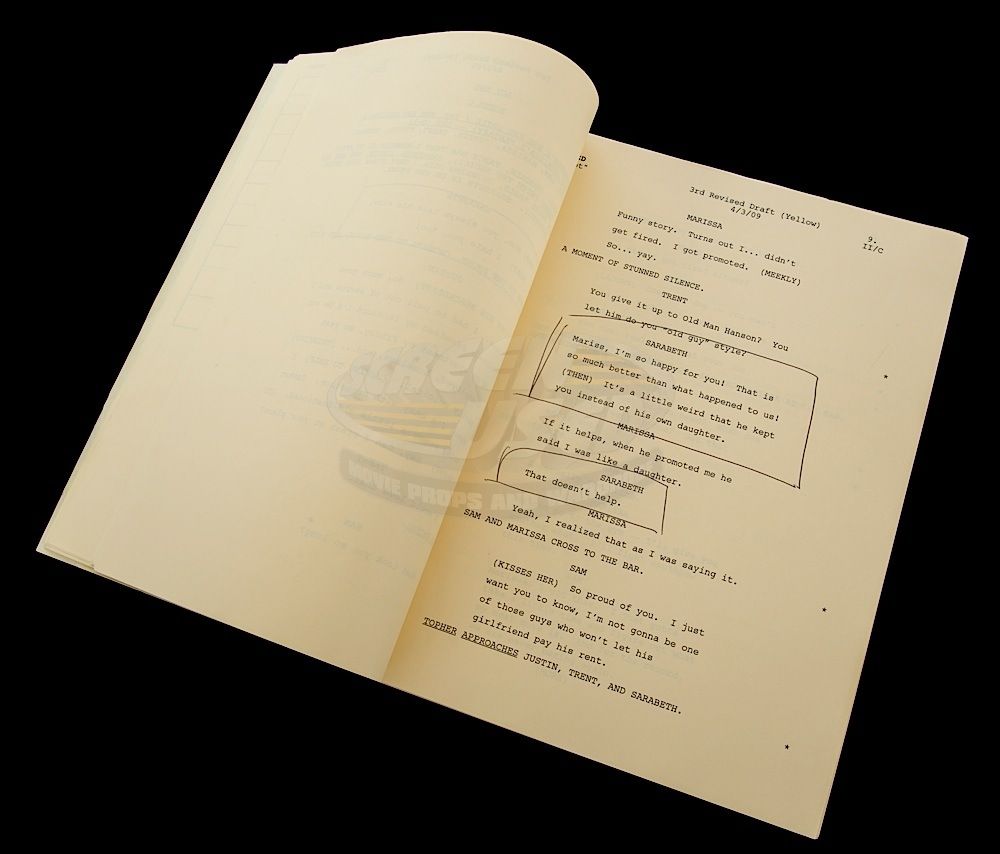 3rd Revised Draft (Yellow)
4/3/09
9.
II/C
MARISSA
Funny story. Turns out I... didn't
get fired. I got promoted. (MEEKLY)
So... yay.
A MOMENT OF STUNNED SILENCE.
TRENT
You give it up to Old Man Hanson? You
let him do you "old guy" style?
SARABETH
Mariss, I'm so happy for you! That is
so much better than what happened to us!
(THEN) It's a little weird that he kept
you instead of his own daughter.
MARISSA
If it helps, when he promoted me he
said I was like a daughter.
SARABETH
That doesn't help.
MARISSA
Yeah, I realized that as I was saying it.
SAM AND MARISSA CROSS TO THE BAR.
SAM
(KISSES HER) So proud of you. I just
want you to know, I'm not gonna be one
of those guys who won't let his
girlfriend pay his rent.
TOPHER APPROACHES JUSTIN, TRENT, AND SARABETH.
*
*
*
SCREEN
USED
MOVIE PROPS AND